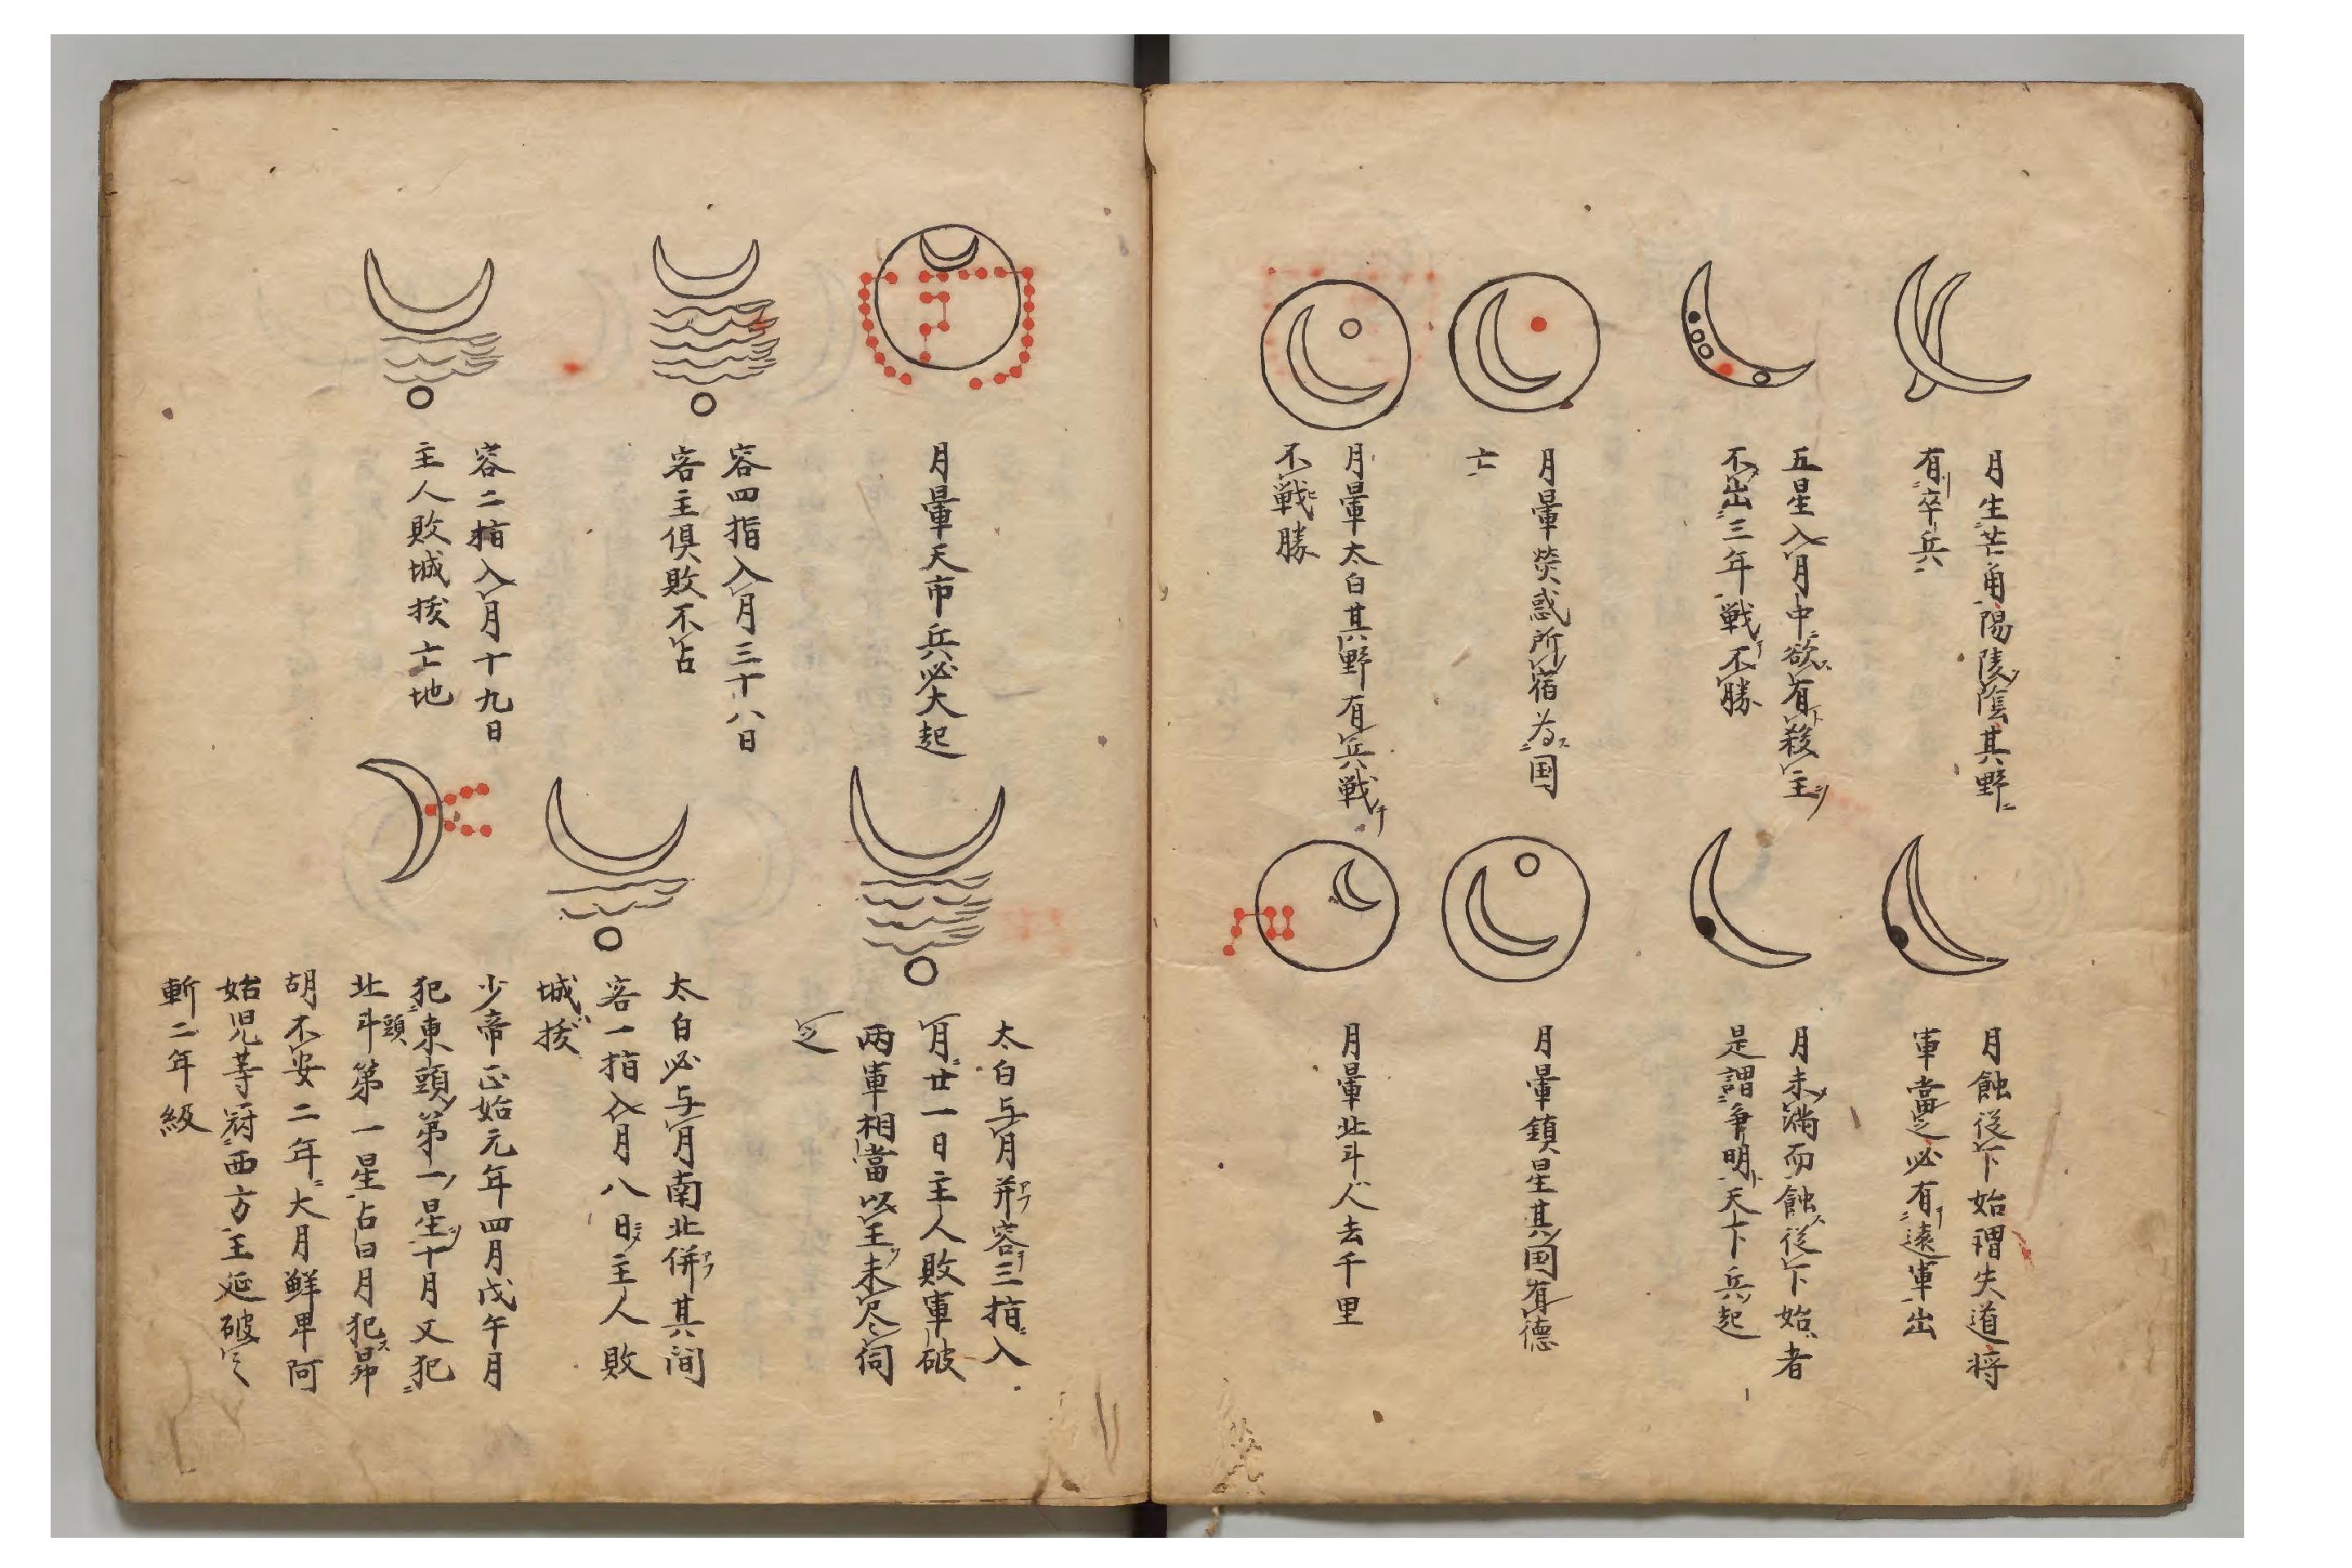 月生芒角陽陵陰其野
有卒兵
五星入月中欲有殺主
不出三年戦不勝
月暈熒惑所宿為国
亡
月暈太白其野有兵戦
不戦勝
月蝕従下始謂失道将
軍當之必有遠軍出
月未満而蝕従下始者
是謂争明天下兵起
月暈鎮星其国有徳
月暈北斗人去千里
月暈天市兵必大起
容四指入月三十八日
客主倶敗不占
容二指入月十九日
主人敗城抜亡地
太白与月并容三指入
月廿一日主人敗軍破
両軍相當以王未尽伺
之
太白必与月南北併其間
容一指入月八日主人敗
城抜
少帝正始元年四月戊午月
犯東頭第一星十月又犯
北斗頭第一星占曰月犯昴
胡不安二年大月鮮卑阿
始児等冠西方王延破之
斬二年級